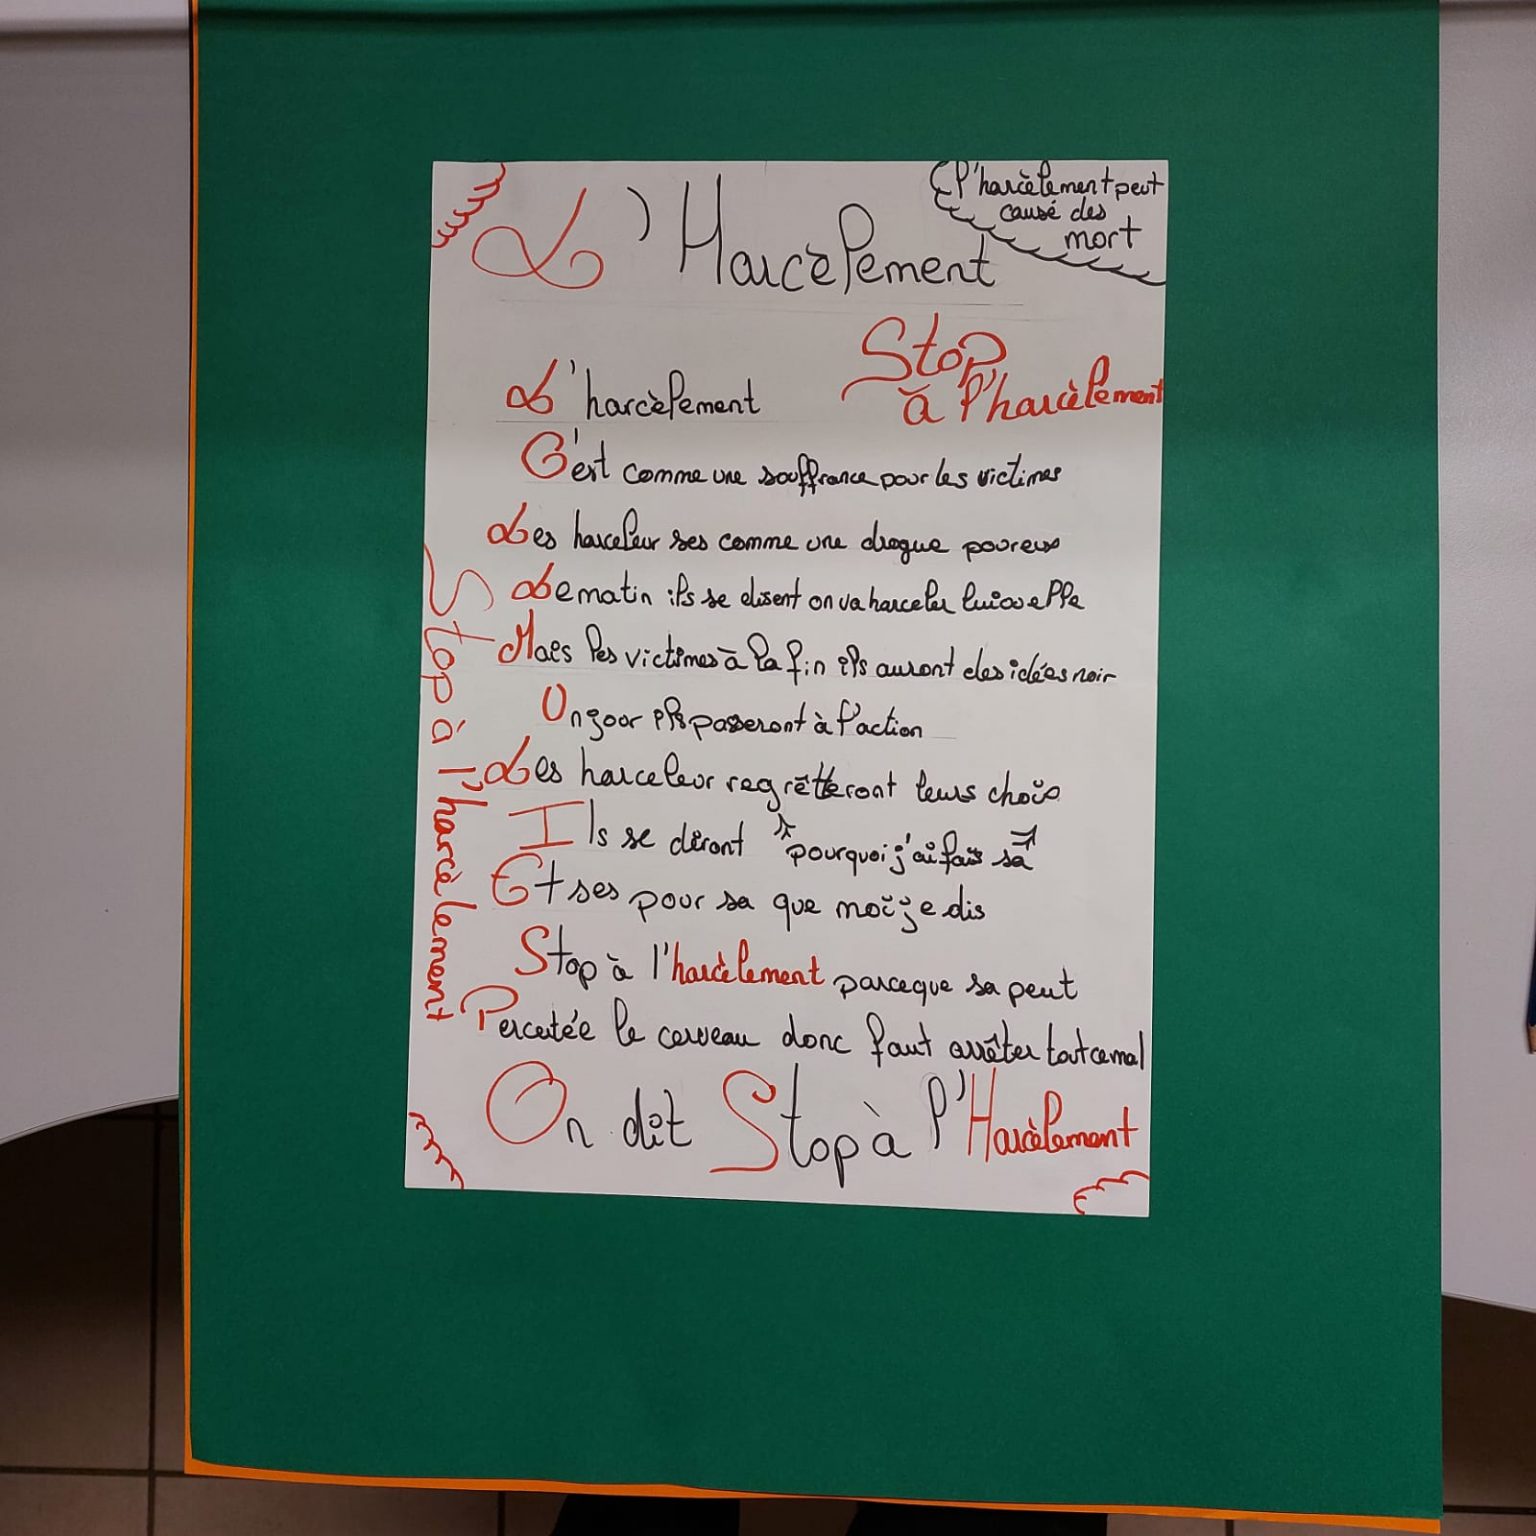 L'Harcèlement
l'harcèlement peut
causé des
mort
Stop
à l'harcèlement
L'harcèlement
C'est comme une souffrance pour les victimes
Les harceleur ses comme une drogue pour eux
Le matin ils se disent on va harceler lui ou elle
Mais les victimes à la fin ils auront des idées noir
Un jour ils passeront à l'action
Les harceleur regrêtteront leurs chois
Ils se diront pourquoi j'ai fais sa
Et ses pour sa que moi je dis
Stop à l'harcèlement parceque sa peut
Percutée le cerveau donc faut arrêter tout ce mal
On dit Stop à l'Harcèlement
Stop à l'harcèlement